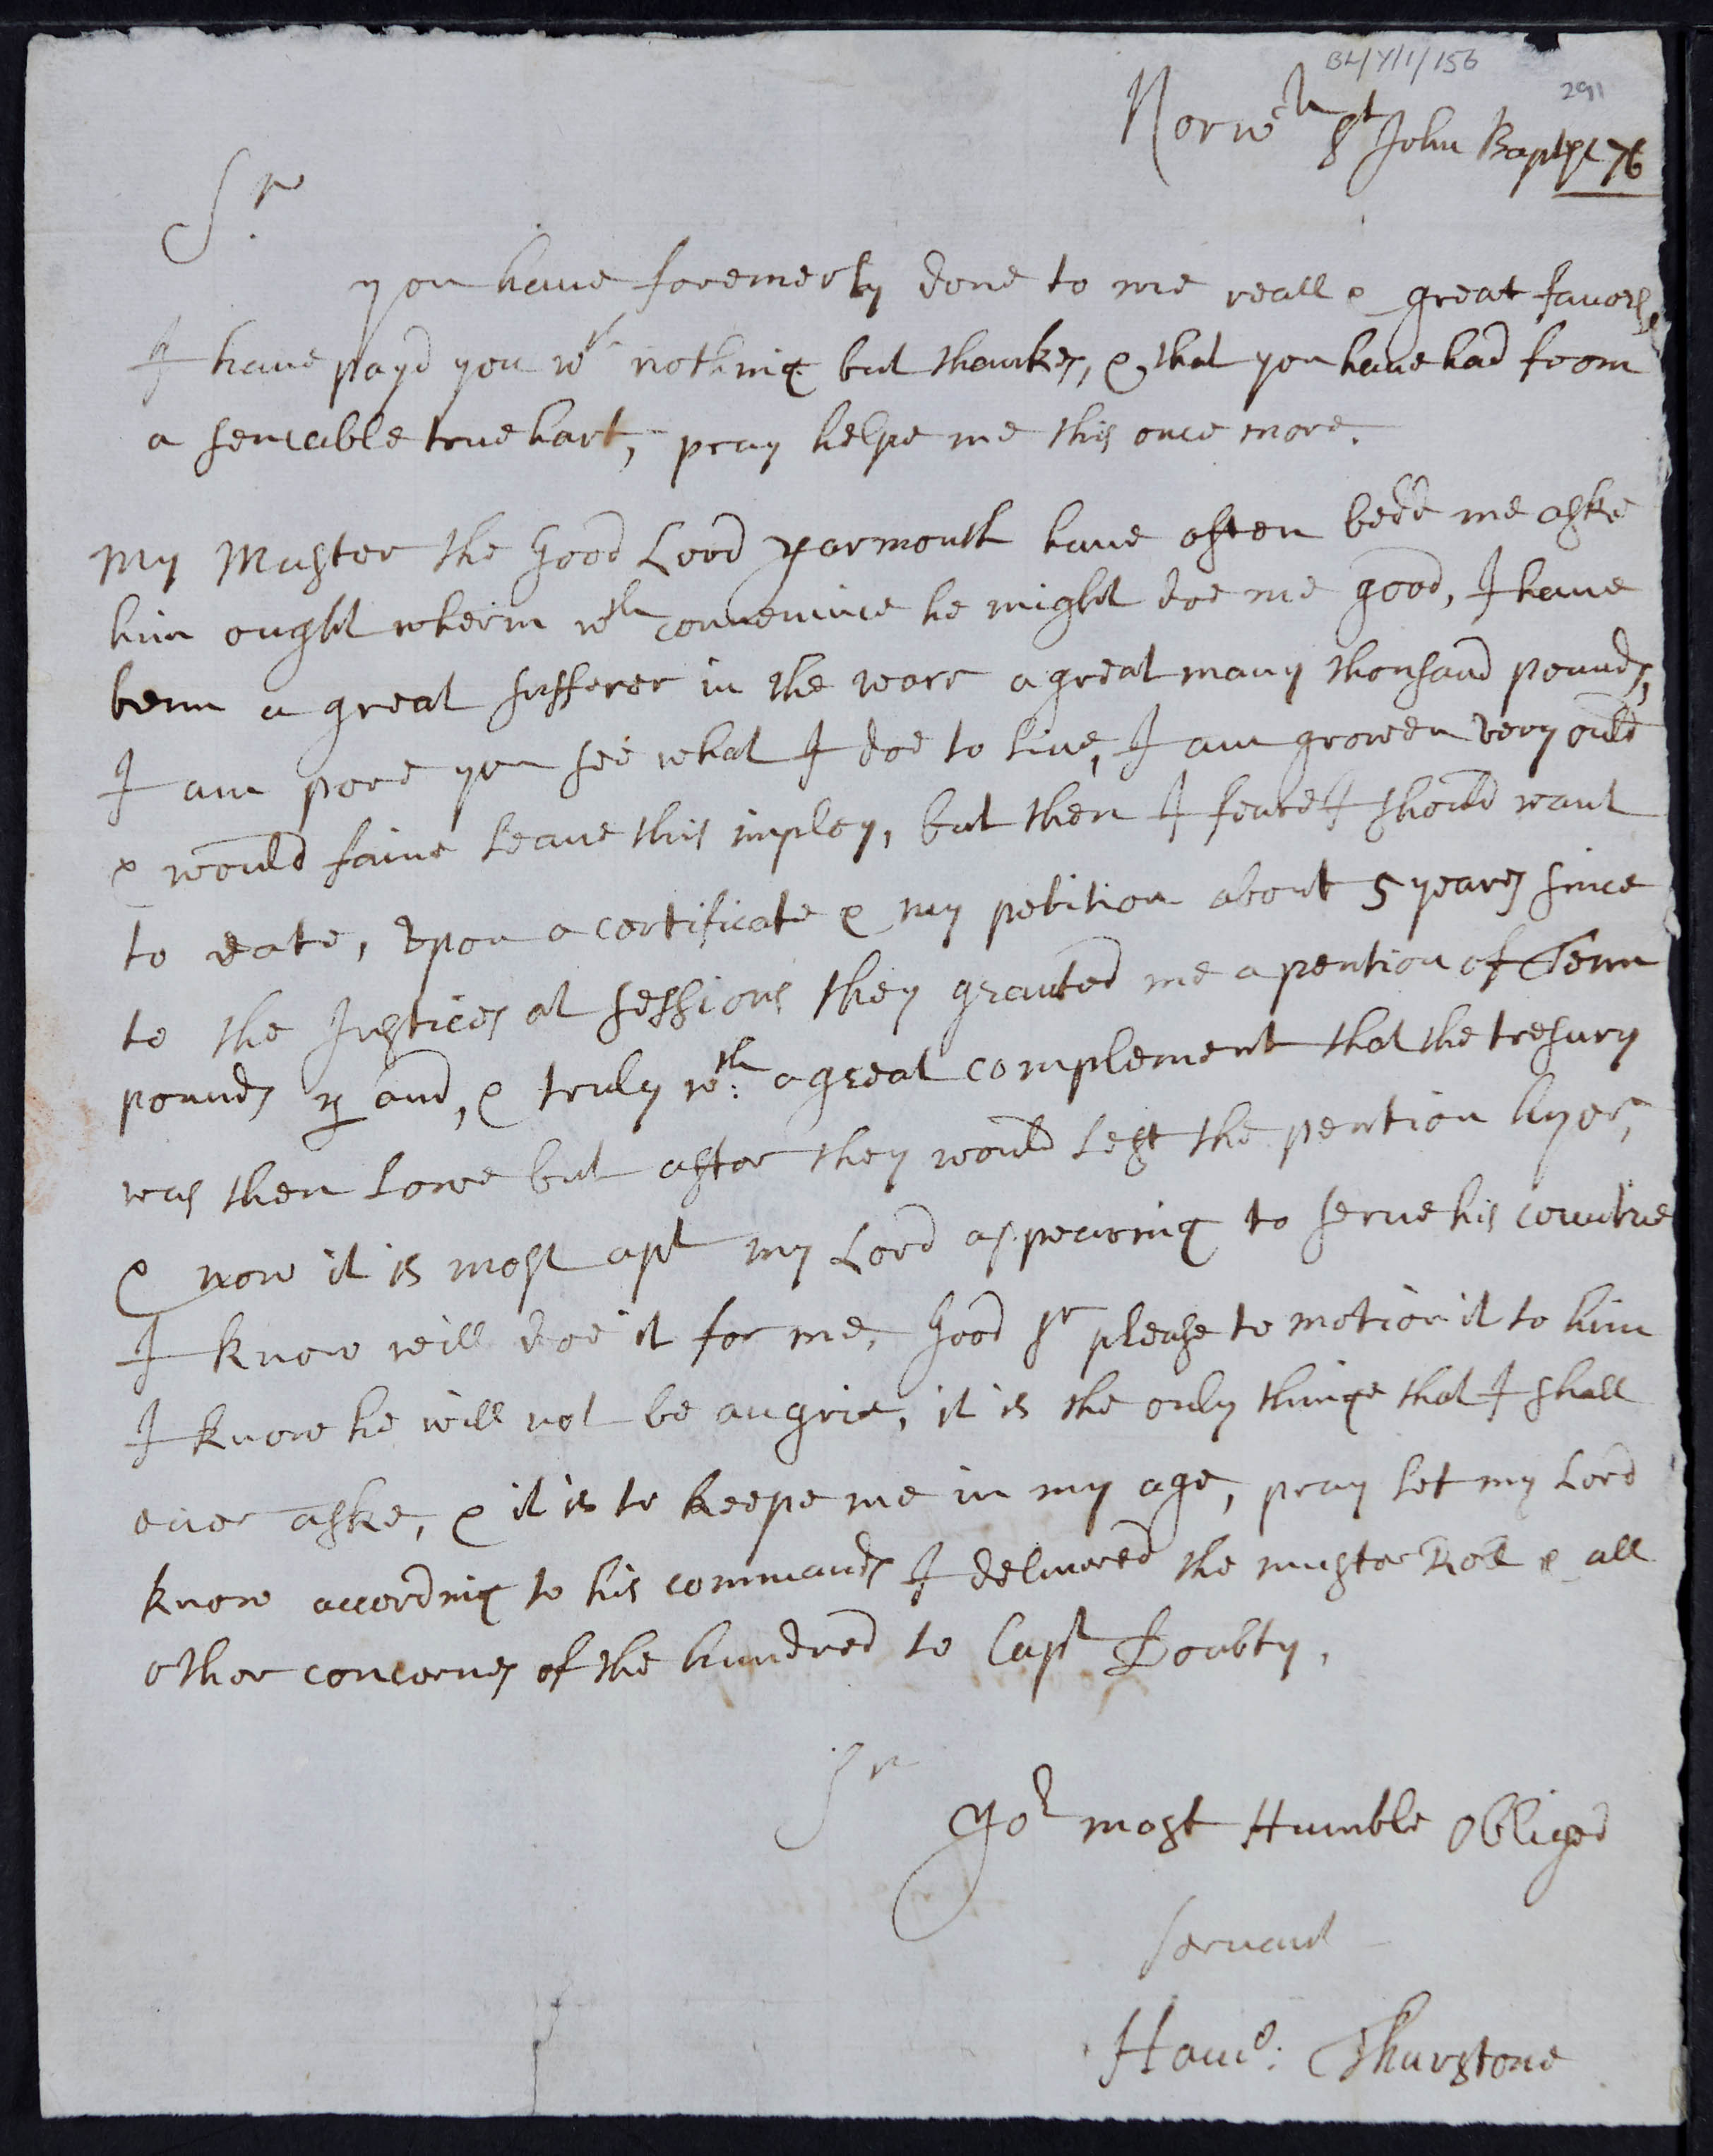 BL/Y/1/156
291
Norwch St John Baptist 76
Sr
you haue foremerly done to me reall & great fauors,
I haue payd you wth nothing but thankes, & that you haue had from
a sencable true hart, pray helpe me this once more.
My Master the good Lord yarmouth haue often bedd me aske
him ought wherin wth conuenince he might doe me good, I haue
benn a great sufferer in the warr a great many thousand pounds,
I am pore you see what I doe to liue, I am growen very ould
& would faine leaue this imploy, but then I feare I should want
to eate, vpon a certificate & my petition about 5 yeares since
to the Justices at sessions they granted me a pention of Tenn
pounds p ann, & truly wth: a great complement that the tresury
was then lowe but after they would sett the pention hyer,
& now it is most apt my Lord appearing to serue his countrie
I know will doe it for me, good Sr please to motion it to him
I know he will not be angrie, it is the only thinge that I shall
euer aske, & it is to keepe me in my age, pray let my Lord
know according to his commands I deliuered the muster Role & all
other concernes of the hundred to Capt Doubty,
Sr
yor most Humble Obliged
seruant
Hamo: Thurstone